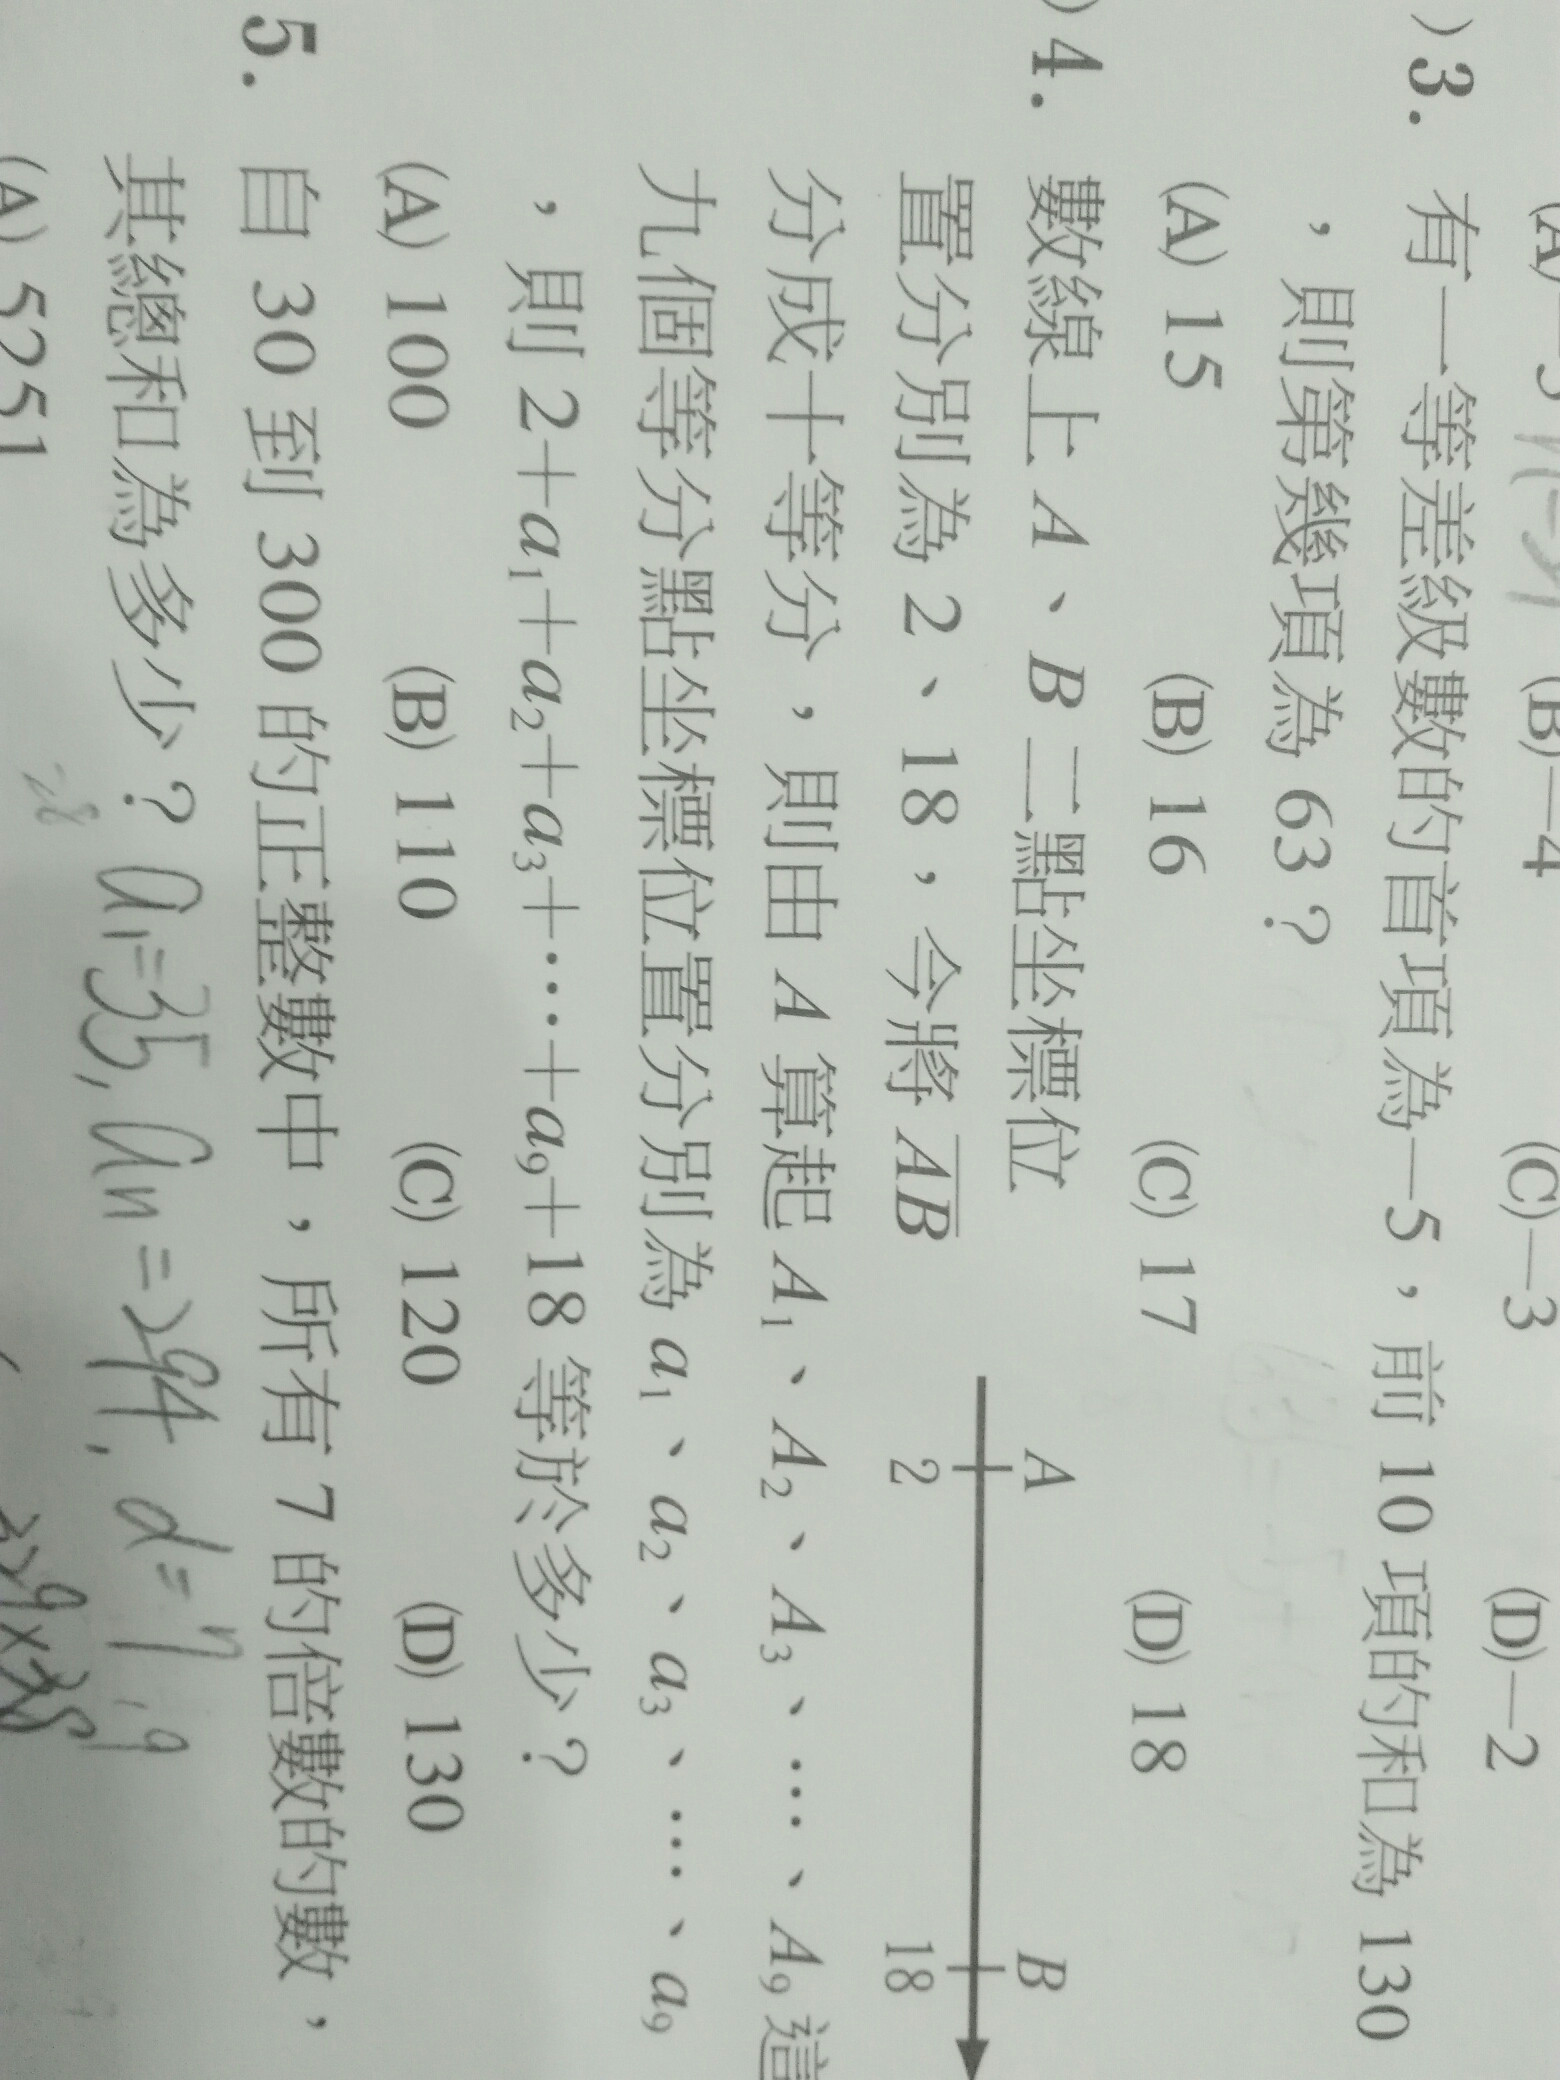 (A)-5 (B)-4 (C)-3 (D)-2
)3. 有一等差級數的首項為-5,前 10 項的和為 130
,則第幾項為 63?
(A) 15 (B) 16 (C) 17 (D) 18
)4. 數線上 A、B 二點坐標位
置分別為 2、18,今將 AB
A B
2 18
分成十等分,則由 A 算起 A₁、A₂、A₃、…、A₉ 這
九個等分點坐標位置分別為 a₁、a₂、a₃、…、a₉
,則 2+a₁+a₂+a₃+…+a₉+18 等於多少?
(A) 100 (B) 110 (C) 120 (D) 130
5. 自 30 到 300 的正整數中,所有 7 的倍數的數,
其總和為多少? a₁=35, an=294, d=7
28
(A) 5251 329×38